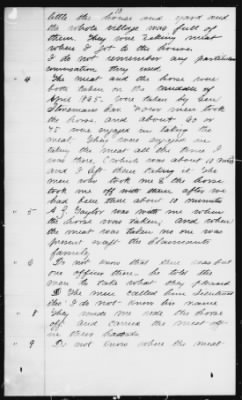 18
little the house and yard and
the whole village was full of
them. They were taking meat
when I got to the house.
I do not remember any particular
conversation they used
" 4 The meat and the horse were
both taken on the middle of
April 1865. Were taken by Gen
men took
the horse. and about 40 or
45 were engaged in taking the
meat. They were engaged in
taking the meat all the time I
was there (which was about 10 minutes
and I left them taking it. The
men who took me & the horse
took me off with them after we
had been there about 10 minutes
" 5 A. J. Taylor was with me when
the horse was taken, and when
the meat was taken no one was
present except the Claimants
family
" 6 Do not know that there was but
one officer there. he told the
men to take what they pleased
The men called him Lieutenant
I do not know his name
" 8 They made me ride the horse
off and carried the meat off
in their hands
" 9 Do not know where the meat